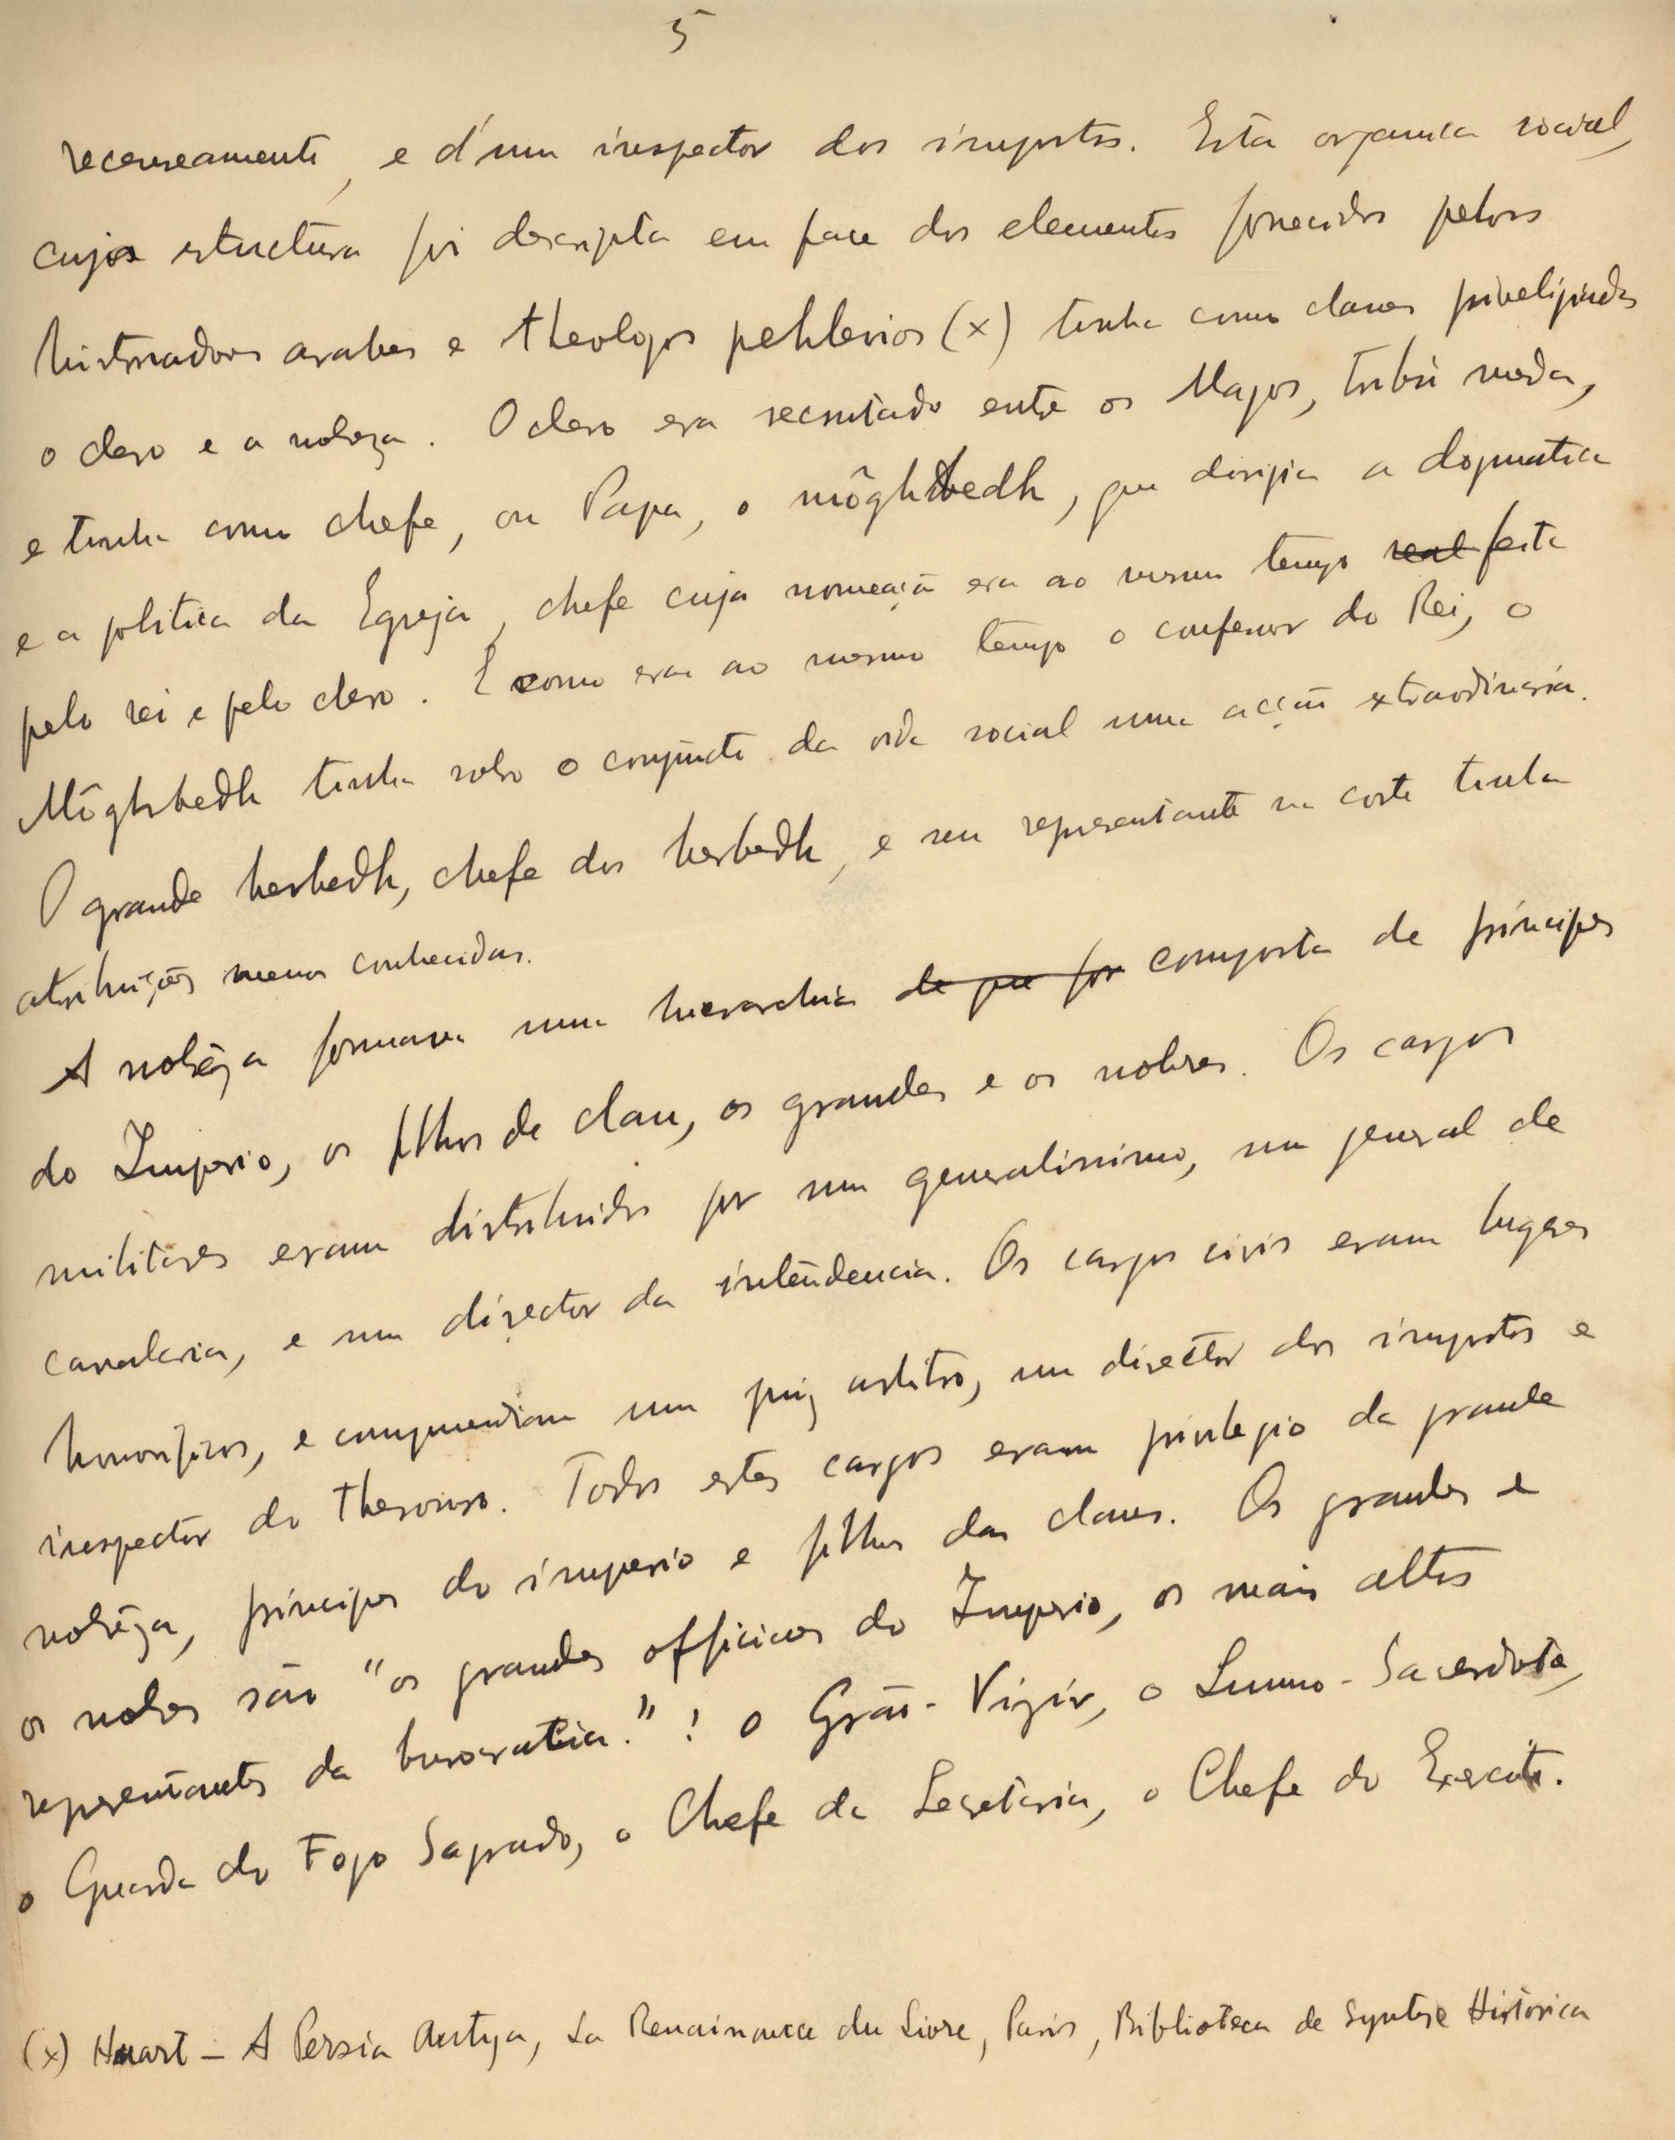 5
recenseamento, e d'um inspector dos impostos. Esta organica social,
cuja estructura foi descripta em face dos elementos fornecidos pelos
historiadores arabes e theologos pehlevios (x) tinha como classes priveligiadas
o clero e a nobreza. O clero era recrutado entre os Magos, tribú meda,
e tinha como chefe, ou Papa, o môghbedh, que dirigia a dogmatica
e a politica da Egreja, chefe cuja nomeação era ao mesmo tempo real feita
pelo rei e pelo clero. E como era ao mesmo tempo o confessor do Rei, o
Môghbedh tinha sobre o conjuncto da vida social uma acção extraordinaria.
O grande herbedh, chefe dos herbedh, e seu representante na corte tinha
atribuições menos conhecidas.
A nobrêza formava uma hierarchia de que for composta de principes
do Imperio, os filhos de clan, os grandes e os nobres. Os cargos
militares eram distribuidos por um generalissimo, um general de
cavalaria, e um director da intendencia. Os cargos civis eram lugares
honorificos, e comprendiam um juiz arbitro, um director dos impostos e
inspector do thesouro. Todos estes cargos eram privilegio da grande
nobrêza, principes do imperio e filhos das clanes. Os grandes e
os nobres são "os grandes officiaes do Imperio, os mais altos
representantes da burocratia." : o Grão-Vizir, o Summo-Sacerdote,
o Guarda do Fogo Sagrado, o Chefe da Secretaria, o Chefe do Exercito.
(x) Huart - A Persia Antiga, La Renaissance du Livre, Paris, Biblioteca de Syntese Historica